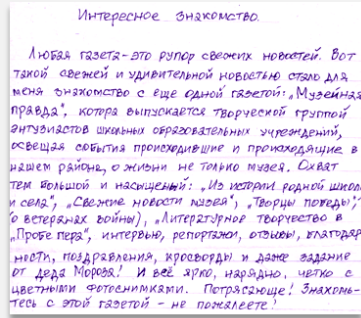 Интересное знакомство.
Любая газета - это рупор свежих новостей. Вот
такой свежей и удивительной новостью стало для
меня знакомство с еще одной газетой: „Музейная
правда", котора выпускается творческой группой
энтузиастов школьных образовательных учреждений,
освещая события происходившие и происходящие в
нашем районе, о жизни не только музея. Охват
тем большой и насыщеный: „Из истории родной школы
и села", „Свежие новости музея", „Творцы победы",
(о ветеранах войны), „Литературное творчество в
„Пробе пера", интервью, репортажи, отзывы, благодар-
ности, поздравления, кросворды и даже задание
от деда Мороза! И всё ярко, нарядно, четко с
цветными фотоснимками. Потрясающе! Знакомь-
тесь с этой газетой - не пожалеете!